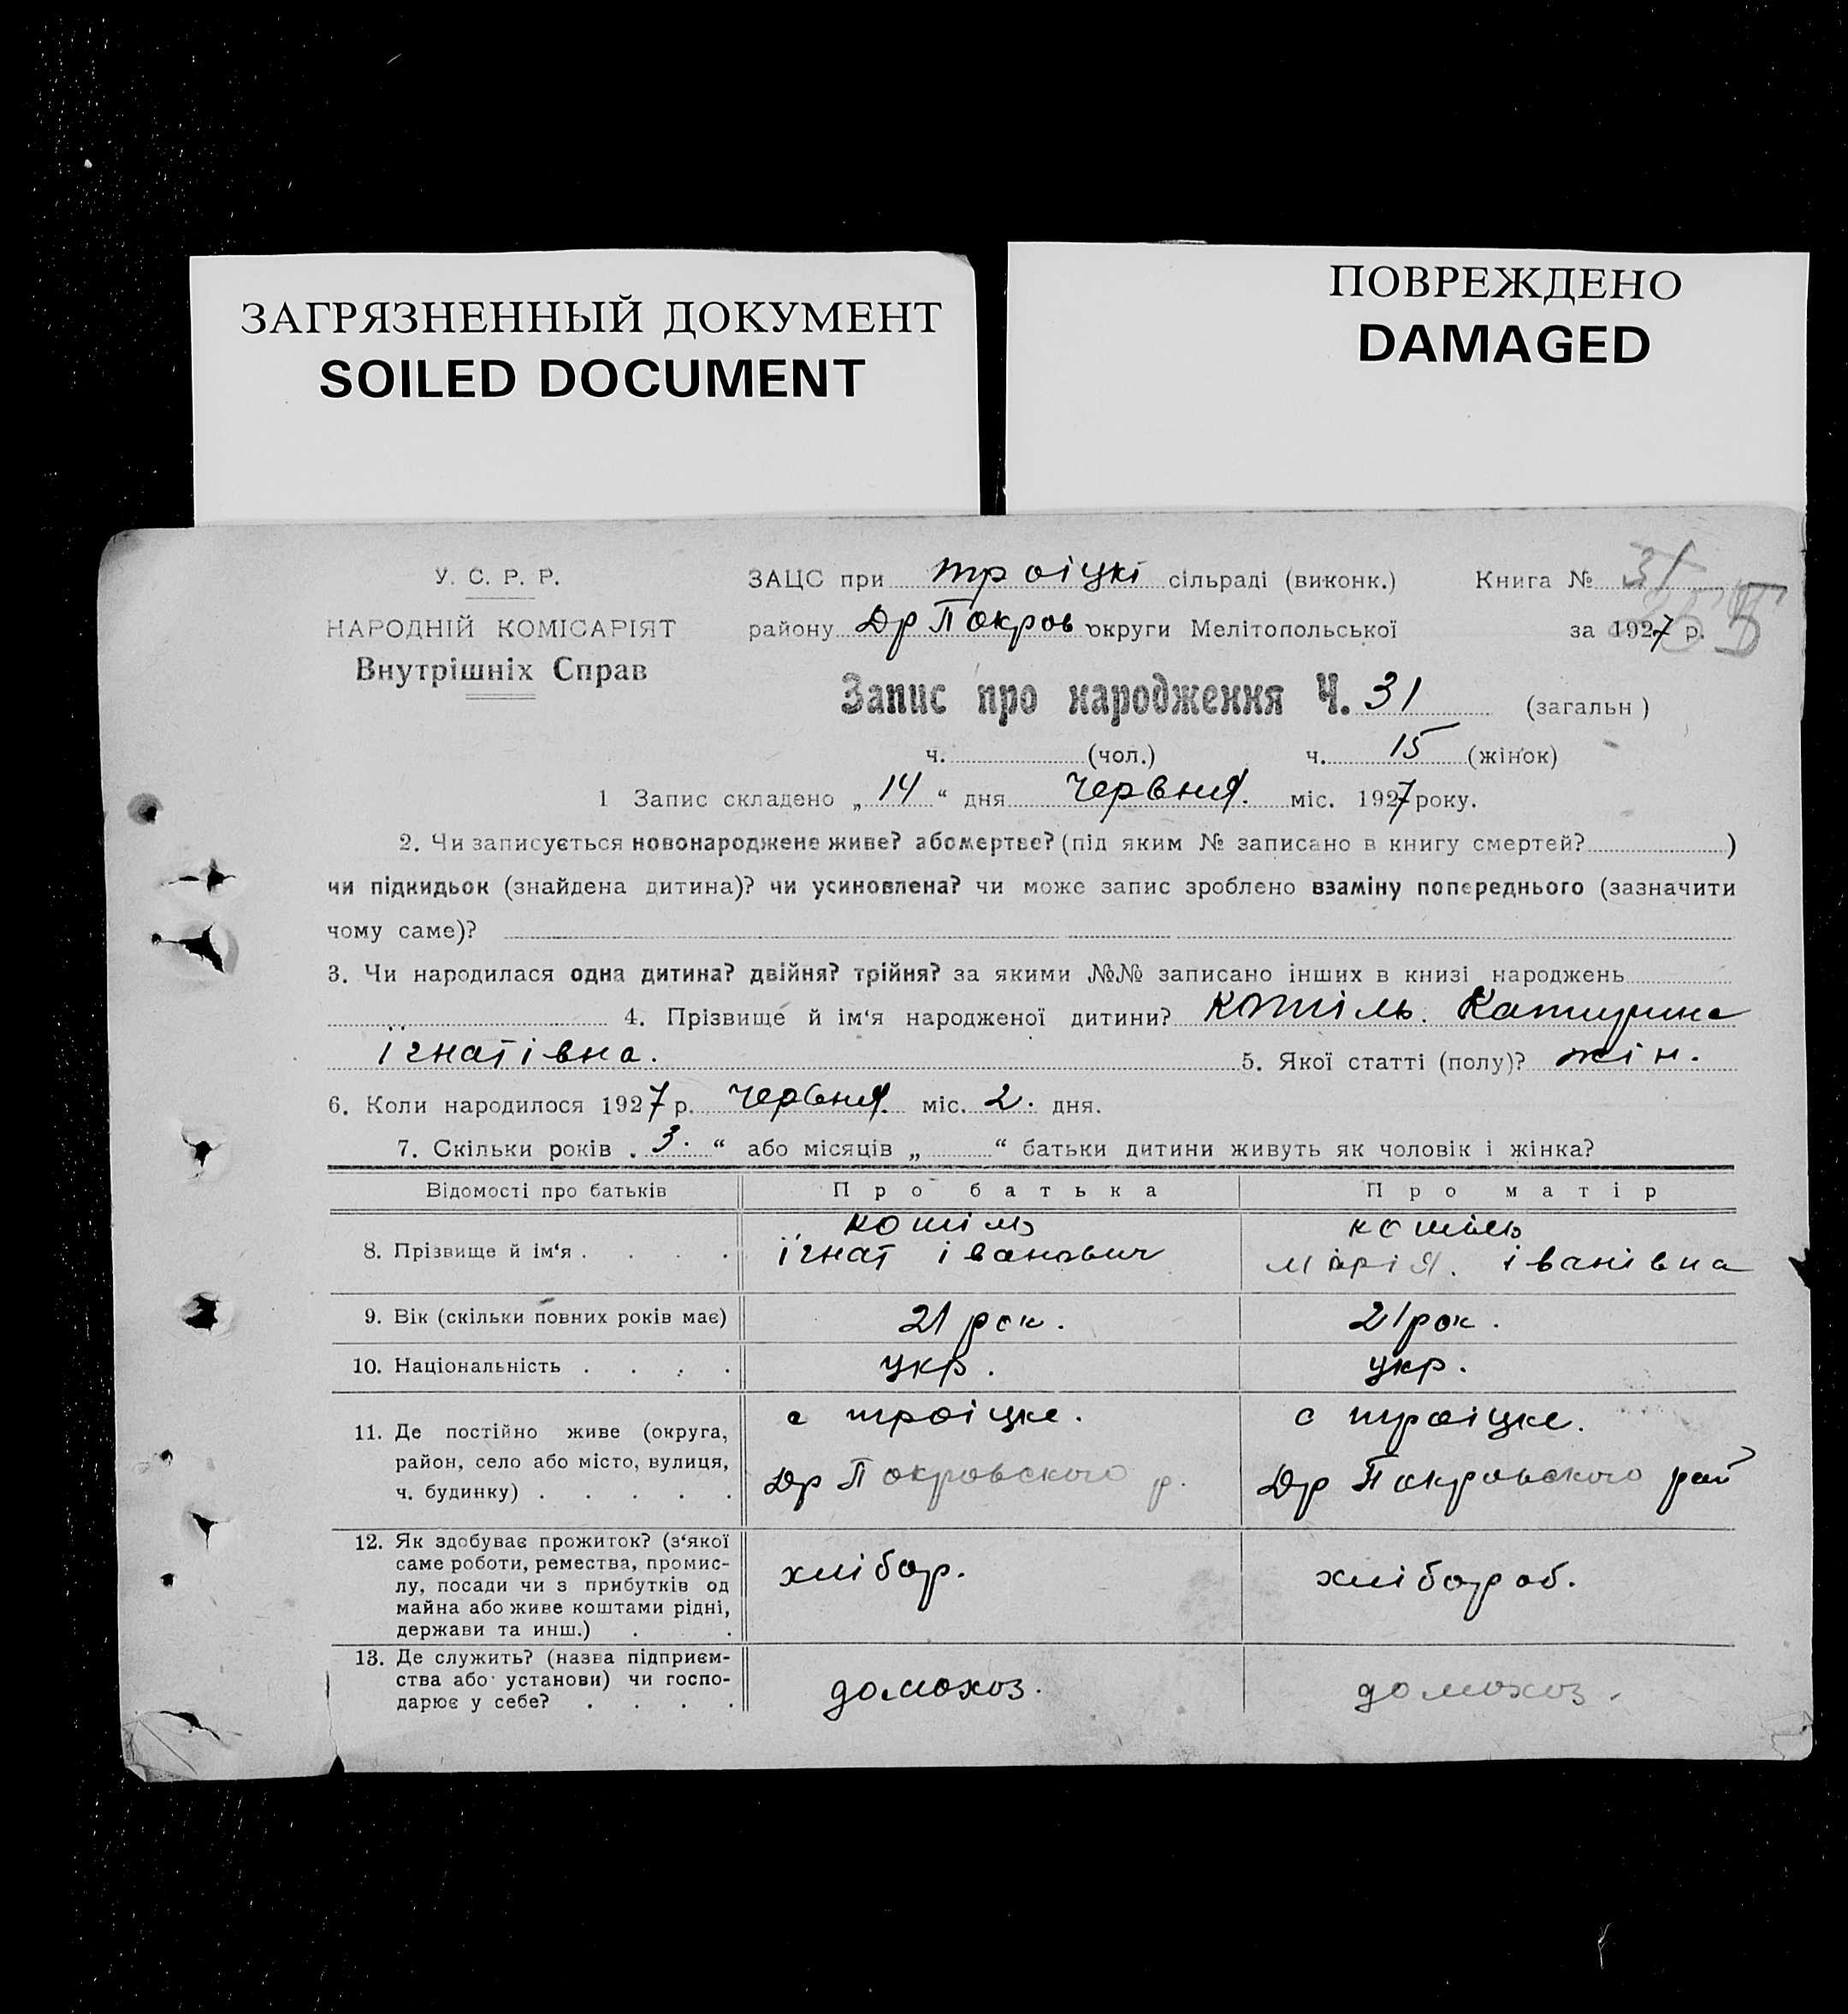 ЗАГРЯЗНЕННЫЙ ДОКУМЕНТ
SOILED DOCUMENT
ПОВРЕЖДЕНО
DAMAGED
У. С. Р. Р.
НАРОДНІЙ КОМІСАРІЯТ
Внутрішніх Справ
ЗАЦС при троіцкі сільраді (виконк.) Книга № 31
району Др Покров округи Мелітопольської за 1927 р. 5
Запис про народження Ч. 31 (загальн)
ч. (чол.) ч. 15 (жінок)
1 Запис складено „ 14 “ дня червня. міс. 1927 року.
2. Чи записується новонароджене живе? або мертве? (під яким № записано в книгу смертей? )
чи підкидьок (знайдена дитина)? чи усиновлена? чи може запис зроблено взаміну попереднього (зазначити
чому саме)?
3. Чи народилася одна дитина? двійня? трійня? за якими №№ записано інших в книзі народжень
4. Прізвище й ім‘я народженої дитини? котіль. Катирина
ігнатівна. 5. Якої статті (полу)? жін.
6. Коли народилося 1927 р. червня. міс. 2. дня.
7. Скільки років . 3. “ або місяців „ “ батьки дитини живуть як чоловік і жінка?
Відомості про батьків Про батька Про матір
8. Прізвище й ім‘я . . . . котіль котіль
ігнат іванович марія. іванівна
9. Вік (скільки повних років має) 21 рок. 21 рок.
10. Національність . . . . укр. укр.
11. Де постійно живе (округа, район, село або місто, вулиця, ч. будинку) . . . . . с троіцке. с троіцке.
Др Покровского р. Др Покровского рай
12. Як здобуває прожиток? (з‘якої
саме роботи, ремества, промис-
лу, посади чи з прибутків од
майна або живе коштами рідні,
держави та инш.) . . хлібор. хлібороб.
13. Де служить? (назва підприєм-
ства або установи) чи госпо-
дарює у себе? . . . . домохоз. домохоз.